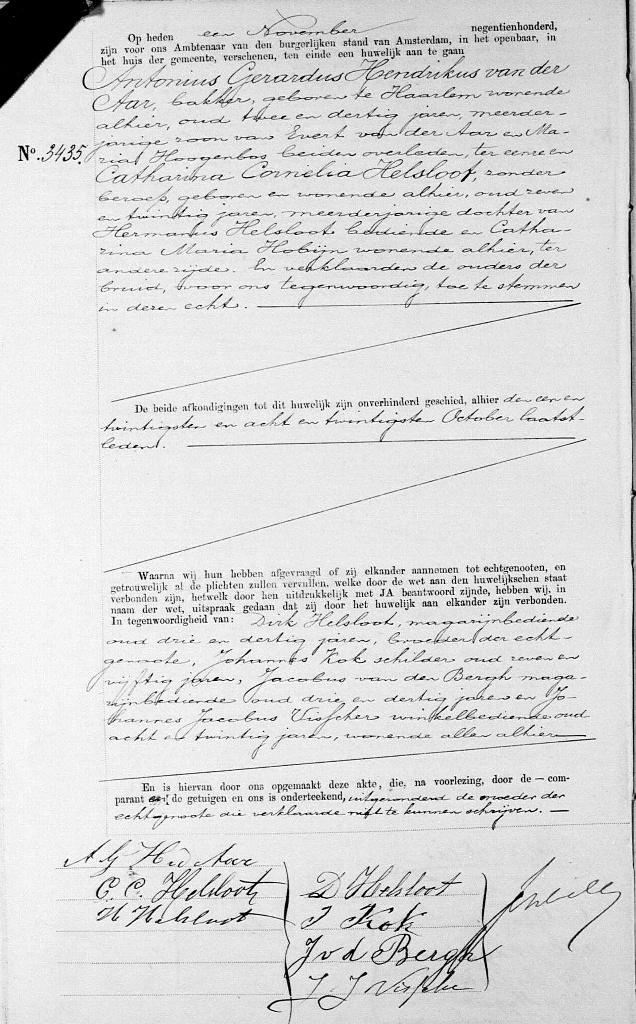 Op heden een November negentienhonderd,
zijn voor ons Ambtenaar van den burgerlijken stand van Amsterdam, in het openbaar, in
het huis der gemeente, verschenen, ten einde een huwelijk aan te gaan
Antonius Gerardus Hendrikus van der
Aar, bakker, geboren te Haarlem wonende
alhier, oud twee en dertig jaren, meerder-
jarige zoon van Evert van der Aar en Ma-
No. 3435. ria Hoogenbos, beiden overleden, ter eenre en
Catharina Cornelia Helsloot, zonder
beroep, geboren en wonende alhier, oud zeven
en twintig jaren, meerderjarige dochter van
Hermanus Helsloot bediende en Catha-
rina Maria Hobijn wonende alhier, ter
andere zijde. En verklaarden de ouders der
bruid, voor ons tegenwoordig, toe te stemmen
in dezen echt.
De beide afkondigingen tot dit huwelijk zijn onverhinderd geschied, alhier den een en
twintigsten en acht en twintigsten October laatst-
leden.
Waarna wij hun hebben afgevraagd of zij elkander aannemen tot echtgenooten, en
getrouwelijk al de plichten zullen vervullen, welke door de wet aan den huwelijkschen staat
verbonden zijn, hetwelk door hen uitdrukkelijk met JA beantwoord zijnde, hebben wij, in
naam der wet, uitspraak gedaan dat zij door het huwelijk aan elkander zijn verbonden.
In tegenwoordigheid van: Dirk Helsloot, magazijnbediende
oud drie en dertig jaren, broeder der echt-
genoote, Johannes Kok schilder oud zeven en
vijftig jaren, Jacobus van den Bergh maga-
zijnbediende oud drie en dertig jaren en Jo-
hannes Jacobus Visscher winkelbediende oud
acht en twintig jaren, wonende allen alhier
En is hiervan door ons opgemaakt deze akte, die, na voorlezing, door de — com-
parant en de getuigen en ons is onderteekend, uitgezonderd de moeder der
echtgenoote die verklaarde niet te kunnen schrijven. —
A G H v d Aar
C. C. Helsloot
H Helsloot
D Helsloot
J Kok
J v d Bergh
J J Visscher